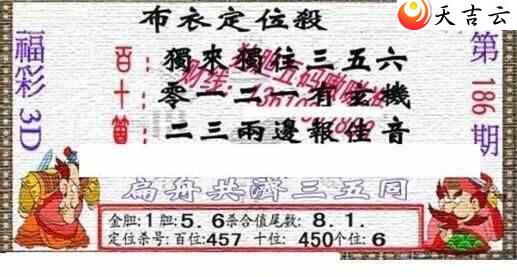 天吉云
布衣定位殺
福彩3D
第186期
百:獨來獨往三五六
十:零一二一有玄機
個:二三兩邊報佳音
扁舟共濟三五同
金胆:1胆:5.6杀合值尾数:8.1.
定位杀号:百位:457 十位:450个位:6